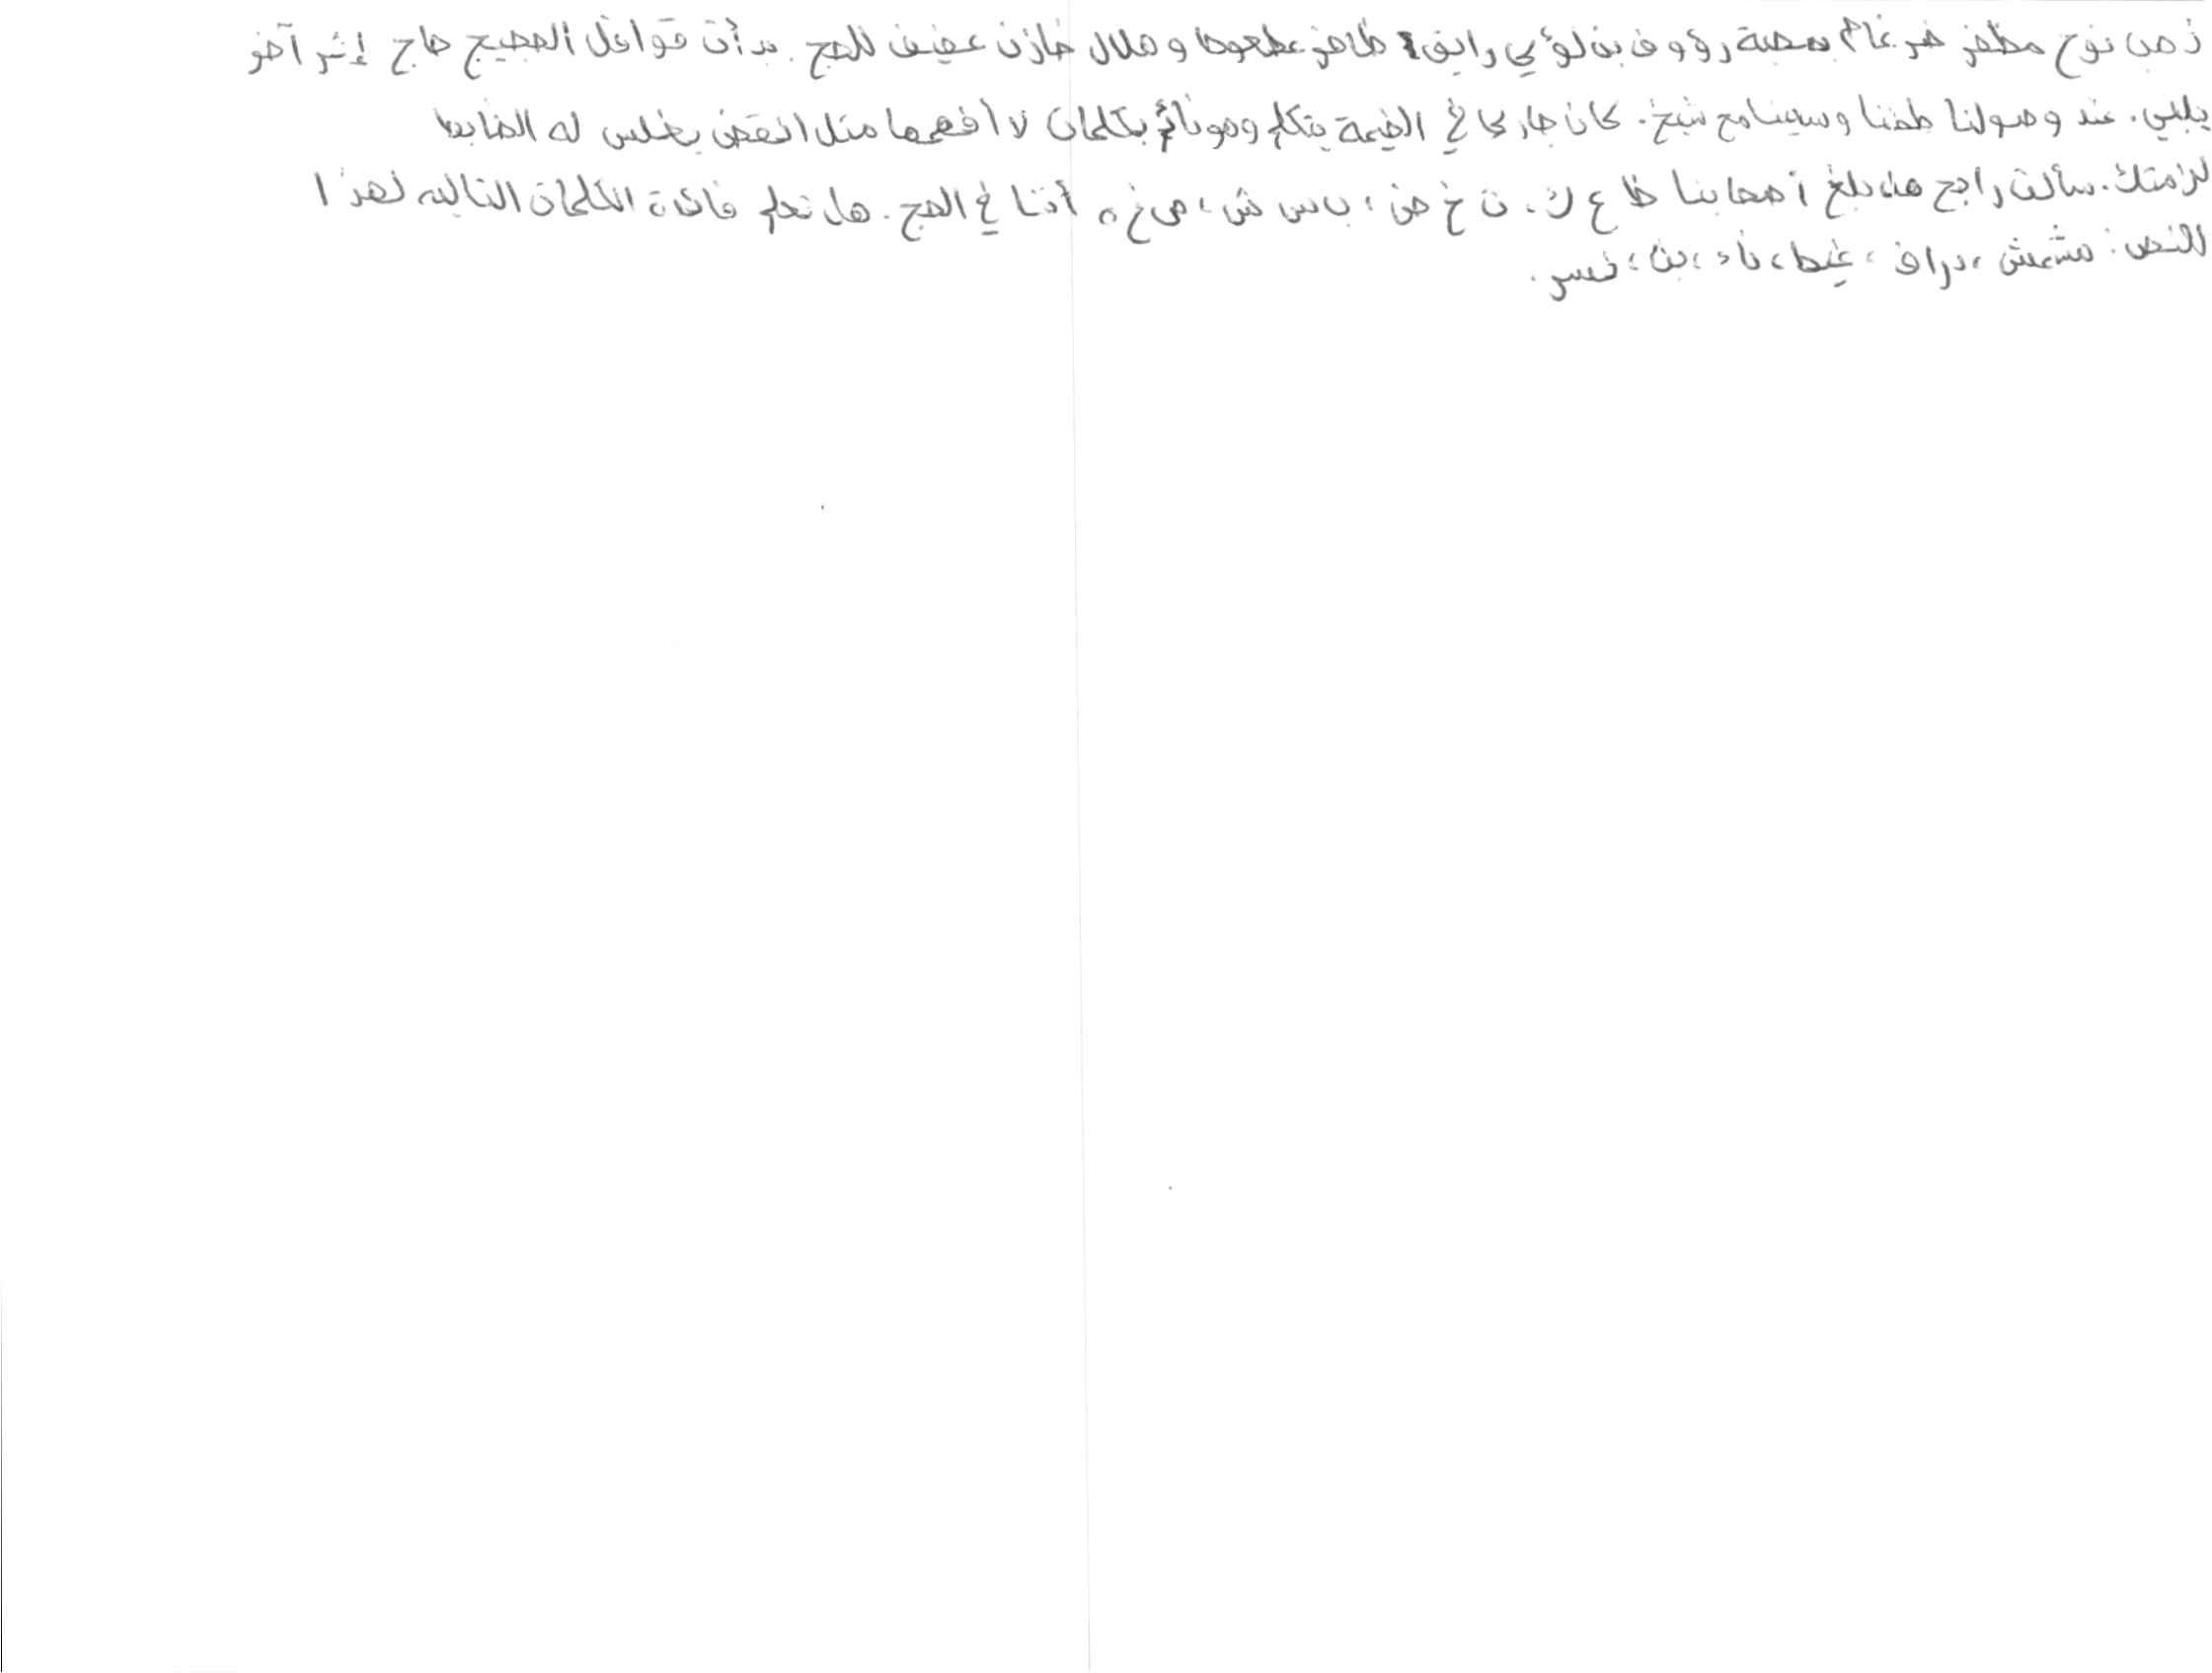 ذهب نوح مظفر ضرغام بصحبة رؤوف بن لؤي رايق ظافر عطعوط وهلال خازن عفيف للحج. بدأت قوافل الحجيج حاج إثر آخر
يلبي. عند وصولنا طفنا وسعينا مع شيخ. كان جاركا في الخيمة يتكلم وهو نائم بكلمات لا أفهمها مثل انقض بغلس له الضابط
لزمتك. سألت راجح هل بلغ أصحابنا ظ ع ك، ت غ ض، ب س ش، ص خ ه أننا في الحج. هل تعلم فائدة الكلمات التالية لهذا
النص: مشمش، دراق، غيط، ناء، بن، نسر.